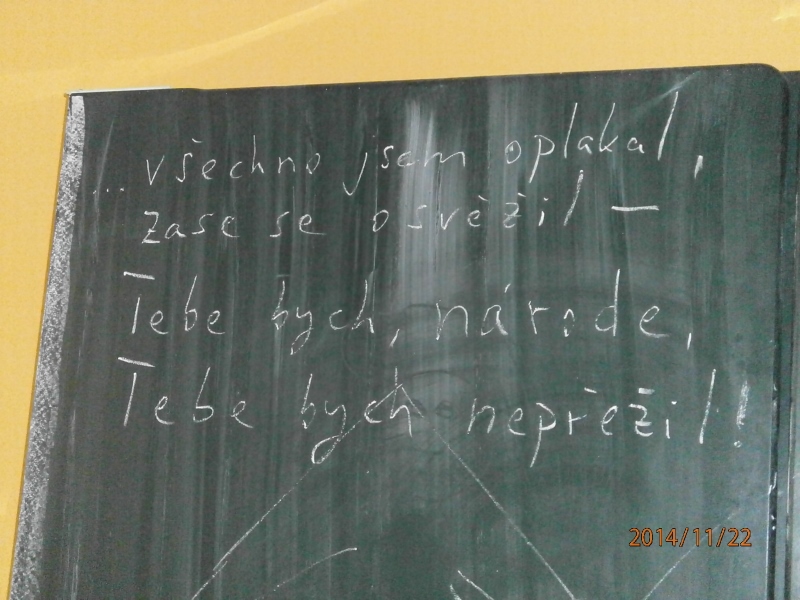 ... všechno jsem oplakal,
zase se osvěžil —
Tebe bych, národe,
Tebe bych nepřežil!
2014/11/22